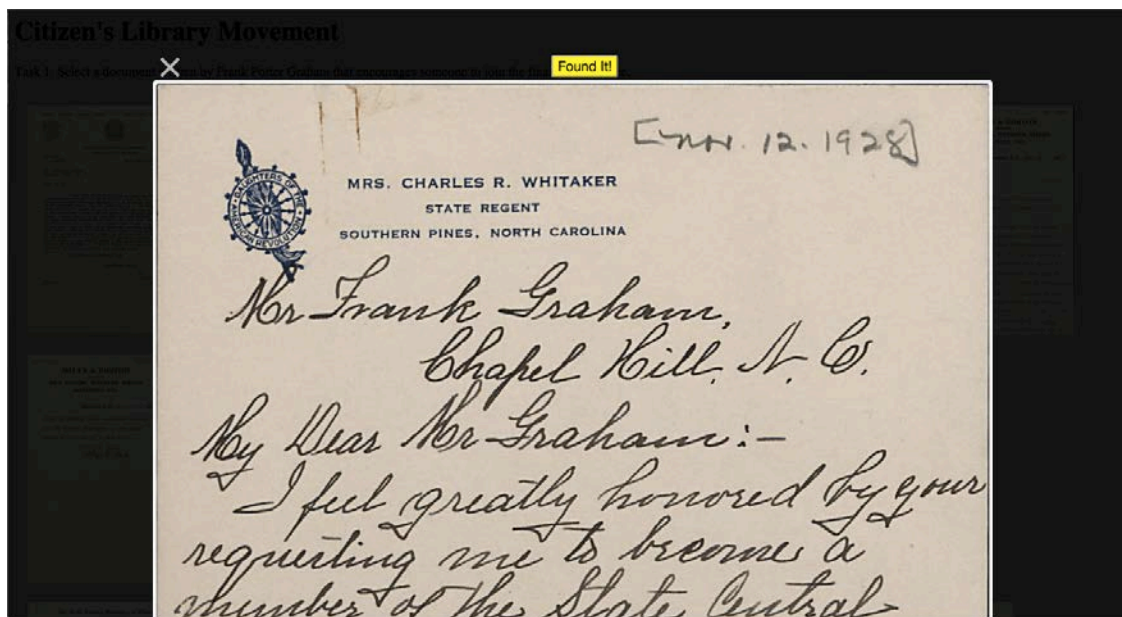 Citizen's Library Movement
Task 1: Select a document by Frank Porter Graham that encourages someone to join the
Found It!
[Nov. 12. 1928]
DAUGHTERS OF THE
AMERICAN REVOLUTION
MRS. CHARLES R. WHITAKER
STATE REGENT
SOUTHERN PINES, NORTH CAROLINA
Mr Frank Graham,
Chapel Hill, N. C.
My Dear Mr Graham:-
I feel greatly honored by your
requesting me to become a
member of the State Central